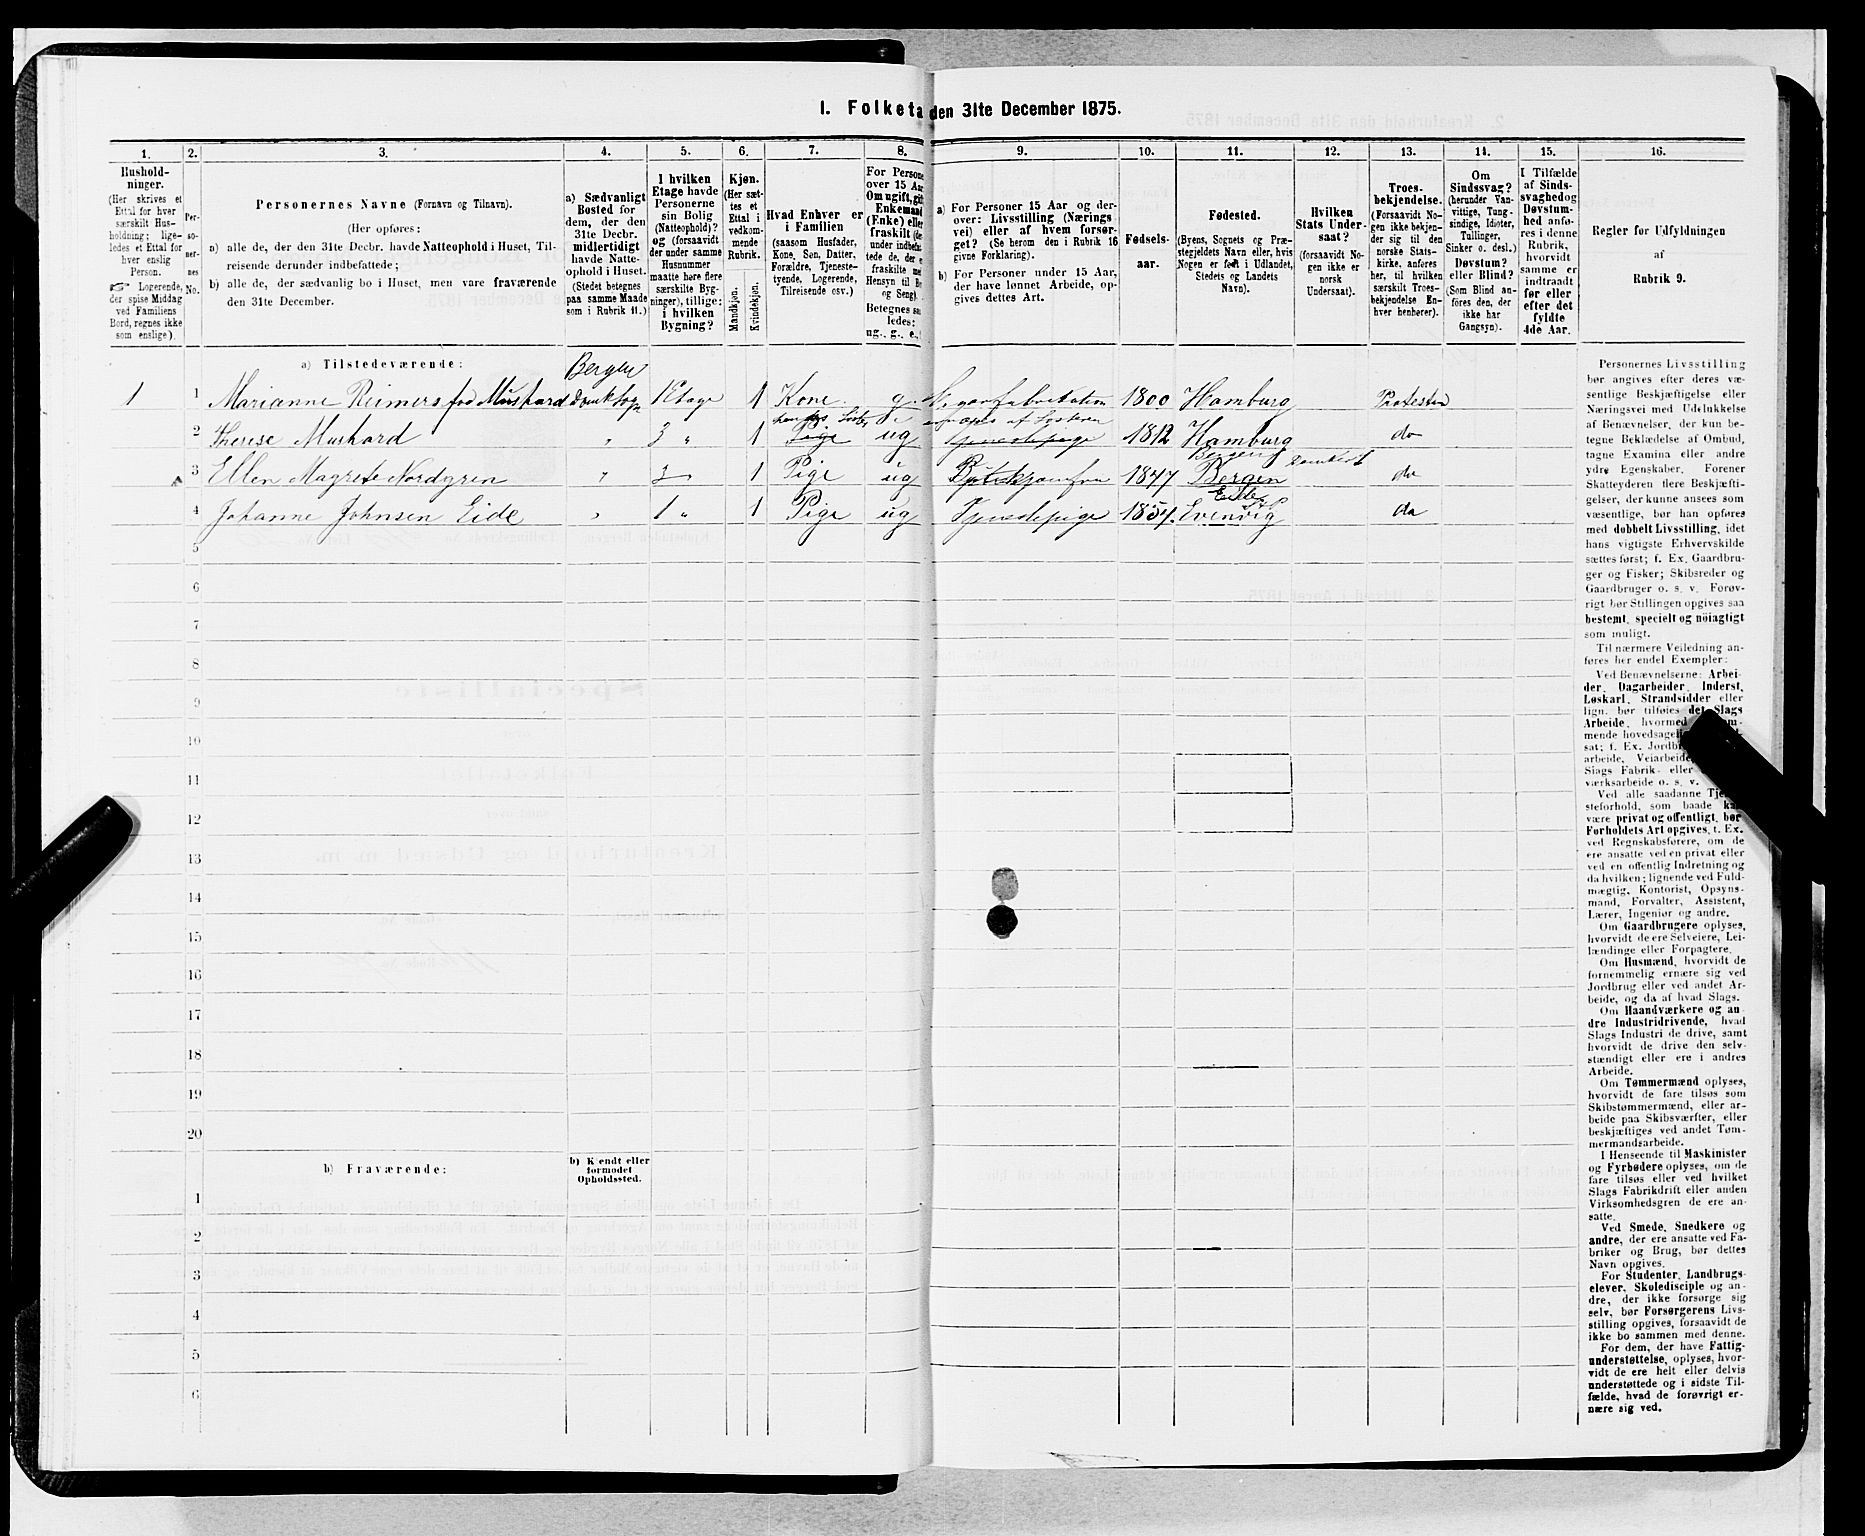 1. Folketa den 31te December 1875.
1. 2. 3. 4. 5. 6. 7. 8. 9. 10. 11. 12. 13. 14. 15. 16.
Hushold-
ninger.
(Her skrives et
Ettal for hver
særskilt Hus-
holdning; lige-
ledes et Ettal for
hver enslig
Person.
☞ Logerende,
der spise Middag
ved Familiens
Bord, regnes ikke
som enslige).
Per-
so-
ner-
nes
No.
Personernes Navne (Fornavn og Tilnavn).
(Her opføres:
a) alle de, der den 31te Decbr. havde Natteophold i Huset, Til-
reisende derunder indbefattede;
b) alle de, der sædvanlig bo i Huset, men vare fraværende
den 31te December.
a) Sædvanligt
Bosted for
dem, der den
31te Decbr.
midlertidigt
havde Natte-
ophold i Huset.
(Stedet betegnes
paa samme Maade
som i Rubrik 11.)
I hvilken
Etage havde
Personerne
sin Bolig
(Natteophold)?
og (forsaavidt
der under samme
Husnummer
maatte høre flere
særskilte Byg-
ninger), tillige:
i hvilken
Bygning?
Kjøn.
(Her sæt-
tes et
Ettal i
vedkom-
mende
Rubrik.
Mandkjøn.
Kvindekjøn.
Hvad Enhver er
i Familien
(saasom Husfader,
Kone, Søn, Datter,
Forældre, Tjeneste-
tyende, Logerende,
Tilreisende osv.)
For Persone
over 15 Aa
Om ugift, gif
Enkemand
(Enke) elle
fraskilt (de
under indbefa
tede, de, der e
fraskilte me
Hensyn til Bo
og Seng).
Betegnes saa
ledes:
ug., g., e.,
a) For Personer 15 Aar og der-
over: Livsstilling (Nærings
vei) eller af hvem forsør-
get? (Se herom den i Rubrik 16
givne Forklaring).
b) For Personer under 15 Aar,
der have lønnet Arbeide, op-
gives dettes Art.
Fødsels-
aar.
Fødested.
(Byens, Sognets og Præ-
stegjeldets Navn eller, hvis
Nogen er født i Udlandet,
Stedets og Landets
Navn).
Hvilken
Stats Under-
saat?
(forsaavidt No-
gen ikke er
norsk
Undersaat).
Troes-
bekjendelse.
(Forsaavidt No-
gen ikke bekjen-
der sig til den
norske Stats-
kirke, anføres
her, til hvilken
særskilt Troes-
bekjendelse En-
hver henhører).
Om
Sindssvag?
(herunder Van-
vittige, Tung-
sindige, Idioter,
Tullinger,
Sinker o. desl.)
Døvstum?
eller Blind?
(Som Blind an-
føres den, der
ikke har
Gangsyn).
I Tilfælde
af Sinds-
svaghed og
Døvstum-
hed anfø-
res i denne
Rubrik,
hvorvidt
samme er
indtraadt
før eller
efter det
fyldte
4de Aar.
Regler for Udfyldningen
af
Rubrik 9.
a) Tilstedeværende:
Bergen
1 1 Marianne Reimers fød Mushard Domk Sogn 1 Etage 1 Kone g. Cigarfabrikation 1800 Hamburg Protestan
2 Therese Mushard " 3 " 1 Pige ug Tjenestepige 1812 Hamburg do
3 Ellen Magrete Nordgren " 1 Pige ug Butikjomfru 1847 Bergen do
4 Johanne Johnsen Eide " 1 " 1 Pige ug Tjenestepige 1854 Evenvig do
5
6
7
8
9
10
11
12
13
14
15
16
17
18
19
20
b) Fraværende:
b) Kjendt eller
formodet
Opholdssted.
1
2
3
4
5
6
Personernes Livsstilling
bør angives efter deres væ-
sentlige Beskjæftigelse eller
Næringsvei med Udelukkelse
af Benævnelser, der kun be-
tegne Beklædelse af Ombud,
tagne Examina eller andre
ydre Egenskaber. Forener
Skatteyderen flere Beskjæfti-
gelser, der kunne ansees som
væsentlige, bør han opføres
med dobbelt Livsstilling, idet
hans vigtigste Erhvervskilde
sættes først; f. Ex. Gaardbru-
ger og Fisker; Skibsreder og
Gaardbruger o. s. v. Forøv-
rigt bør Stillingen opgives saa
bestemt, specielt og nöiagtigt
som muligt.
Til nærmere Veiledning an-
føres her endel Exempler:
Ved Benævnelserne: Arbei-
der, Dagarbeider, Inderst,
Løskarl, Strandsidder eller
lign. bør tilføies det Slags
Arbeide, hvormed
mende hovedsage
sat; f. Ex. Jordb
arbeide, Veiarbeide,
Slags Fabrik- eller
værksarbeide o. s. v.
Ved alle saadanne Tje
steforhold, som baade ka
være privat og offentligt, bør
Forholdets Art opgives, t. Ex.
ved Regnskabsførere, om de
ere ansatte ved en privat eller
ved en offentlig Indretning og
da hvilken; lignende ved Fuld-
mægtig, Kontorist, Opsyns-
mand, Forvalter, Assistent,
Lærer, Ingeniør og andre.
Om Gaardbrugere oplyses,
hvorvidt de ere Selveiere, Lei-
lændinge eller Forpagtere.
Om Husmænd, hvorvidt de
fornemmelig ernære sig ved
Jordbrug eller ved andet Ar-
beide, og da af hvad Slags.
Om Haandværkere og an-
dre Industridrivende, hvad
Slags Industri de drive, samt
hvorvidt de drive den selv-
stændigt eller ere i andres
Arbeide.
Om Tømmermænd oplyses,
hvorvidt de fare tilsøs som
Skibstømmermænd, eller ar-
beide paa Skibsværfter, eller
beskjæftiges ved andet Tøm-
mermandsarbeide.
I Henseende til Maskinister
og Fyrbødere oplyses, om de
fare tilsøs eller ved hvilket
Slags Fabrikdrift eller anden
Virksomhedsgren de ere an-
satte.
Ved Smede, Snedkere og
andre, der ere ansatte ved Fa-
briker og Brug, bør dettes
Navn opgives.
For Studenter, Landbrugs-
elever, Skoledisciple og an-
dre, der ikke forsørge sig
selv, bør Forsørgerens Livs-
stilling opgives, forsaavidt de
ikke bo sammen med denne.
For dem, der have Fattig-
understøttelse, oplyses, hvor-
vidt de ere helt eller delvis
understøttede og i sidste Til-
fælde, hvad de forøvrigt er-
nære sig ved.